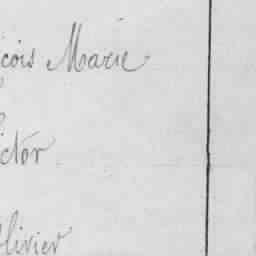 çois Marie
ictor
Olivier